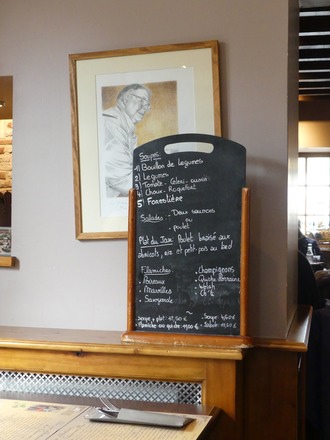 Soupe
1) Bouillon de Legumes
2) Legumes
3) Tomate - Celeri - cumin
4) Choux - Roquefort
5) Forestière
Salades : - Deux saumons
ou
- poulet
Plat du Jour Poulet braisé aux
abricots, riz et petit-pois au lard
Flamiches
. Poireaux
. Maroilles
. Savoyarde
. Champignons
. Quiche Lorraine
. Ch't
~
Soupe + plat : 17,50 €
Flamiche ou quiche 11,00 €
- Soupe : 4,50 €
- Salade :